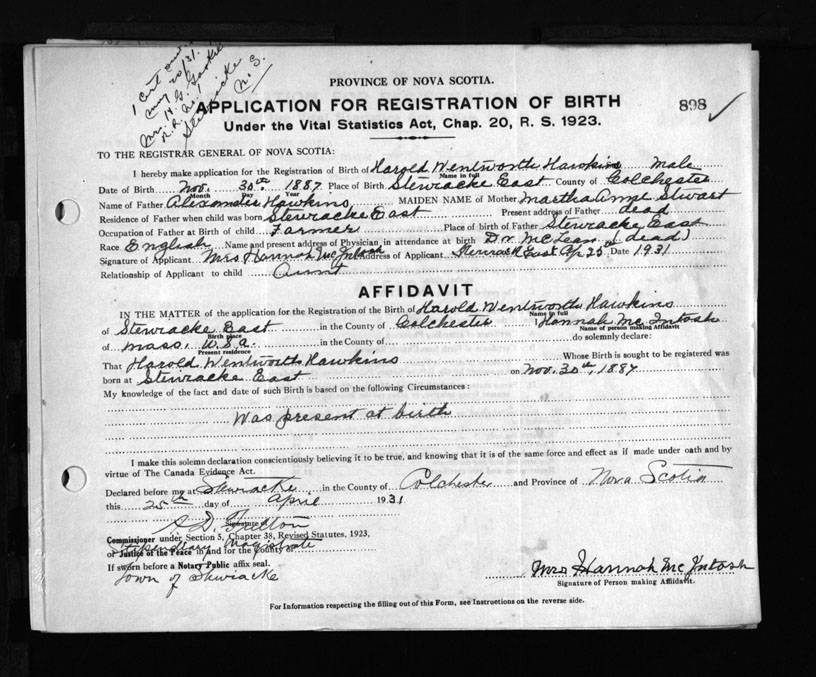 1 cert
May 20/31.
Mr. H. G.
R. R. No. 1
Stewiacke
N. S.
PROVINCE OF NOVA SCOTIA.
APPLICATION FOR REGISTRATION OF BIRTH 898 ✓
Under the Vital Statistics Act, Chap. 20, R. S. 1923.
TO THE REGISTRAR GENERAL OF NOVA SCOTIA:
I hereby make application for the Registration of Birth of Harold Wentworth Hawkins Male
Name in full
Date of Birth Nov. 30th. 1887 Place of Birth Stewiacke East County of Colchester
Month Day Year
Name of Father Alexander Hawkins MAIDEN NAME of Mother Martha Anne Stewart
Residence of Father when child was born Stewiacke East Present address of Father dead
Occupation of Father at Birth of child Farmer Place of birth of Father Stewiacke East
Race English Name and present address of Physician in attendance at birth Dr. McLean (dead)
Signature of Applicant Mrs Hannah McIntosh Address of Applicant Stewiacke East Ap 25 Date 1931
Relationship of Applicant to child Aunt
AFFIDAVIT
IN THE MATTER of the application for the Registration of the Birth of Harold Wentworth Hawkins
Name in full
of Stewiacke East in the County of Colchester I Hannah McIntosh
Birth place Name of person making Affidavit
of Mass. U.S.a. in the County of do solemnly declare:
Present residence
That Harold Wentworth Hawkins Whose Birth is sought to be registered was
born at Stewiacke East on Nov. 30th, 1887
My knowledge of the fact and date of such Birth is based on the following Circumstances:
Was present at birth
I make this solemn declaration conscientiously believing it to be true, and knowing that it is of the same force and effect as if made under oath and by
virtue of The Canada Evidence Act.
Declared before me at Stewiacke in the County of Colchester and Province of Nova Scotia
this 25th day of April 1931
S. D. Fulton
Signature of
Commissioner under Section 5, Chapter 38, Revised Statutes, 1923,
Stipendiary Magistrate
or Justice of the Peace in and for the County of
If sworn before a Notary Public affix seal.
Town of Stewiacke
Mrs Hannah McIntosh
Signature of Person making Affidavit.
For Information respecting the filling out of this Form, see Instructions on the reverse side.